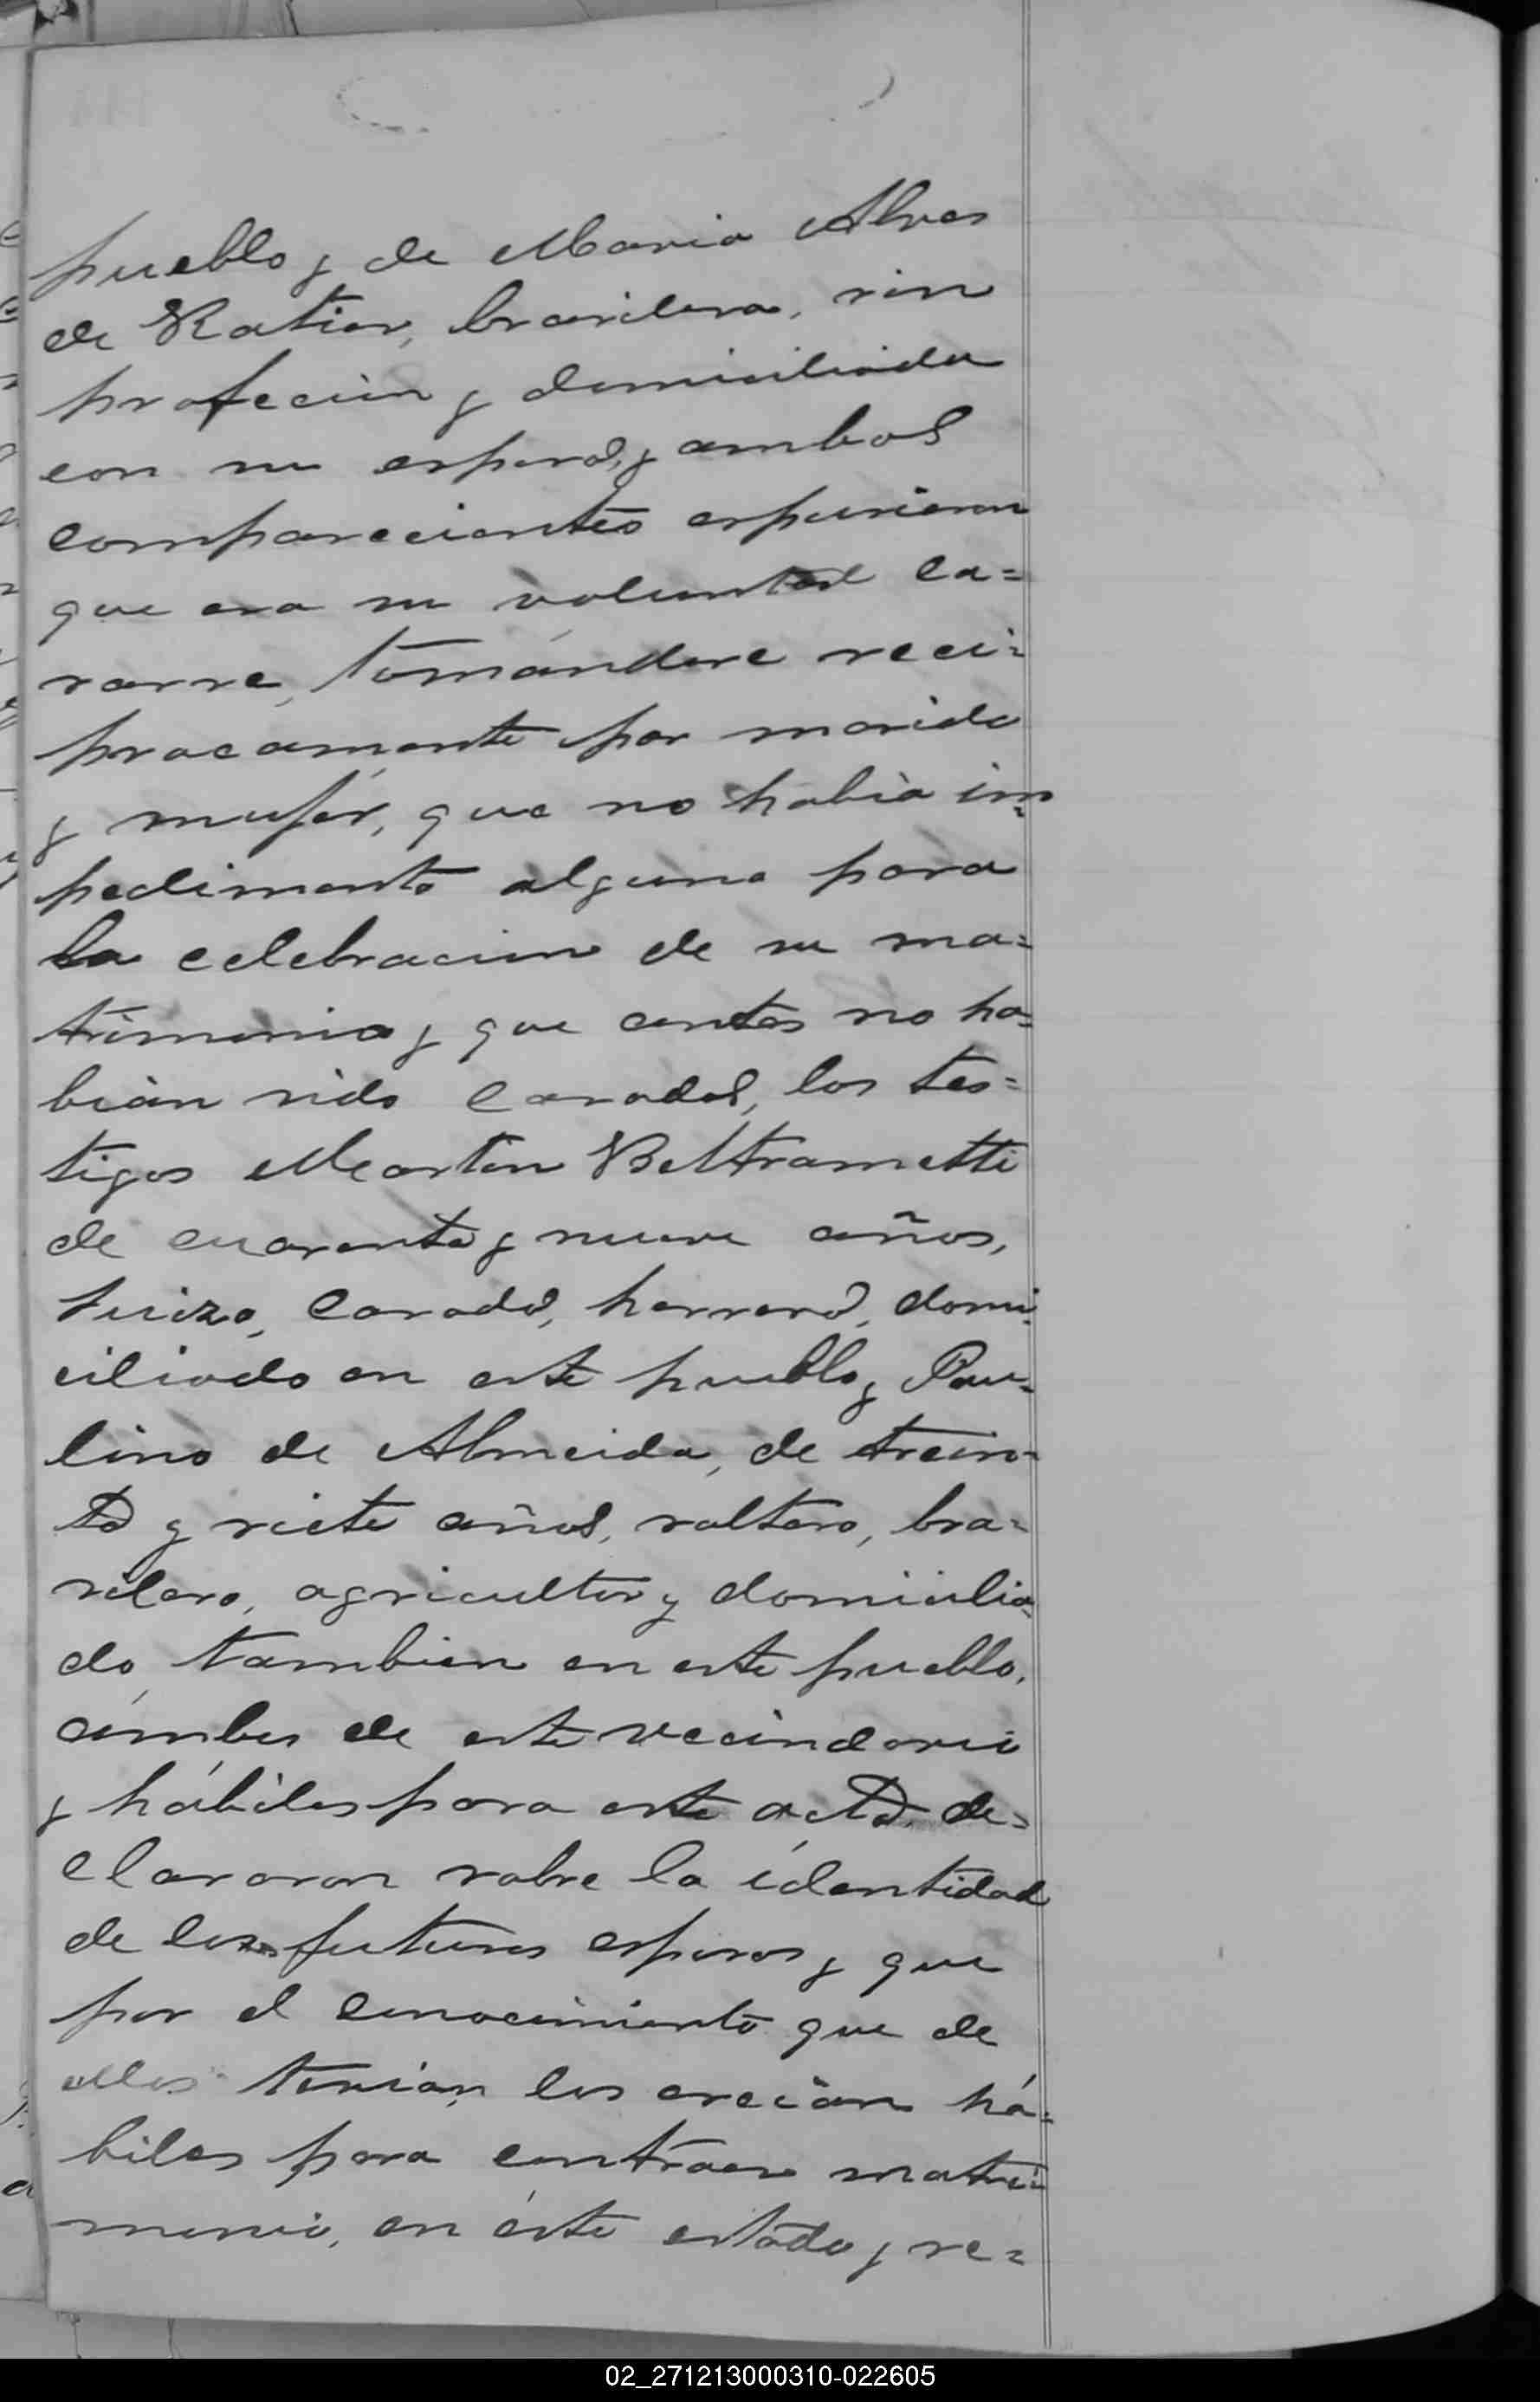 pueblo y de Maria Alves
de Ratier, brasilera, sin
profecion y domiciliada
con su esposo, y ambos
comparecientes espusieron
que era su voluntad ca=
sarse, tomándose reci=
procamente por marido
y mujer, que no habia im=
pedimento alguno para
la celebracion de su ma=
trimonio y que antes no ha=
bian sido casados, los tes=
tigos Martin Beltrametti
de cuarenta y nueve años,
suizo, casado, herrero, domi=
ciliado en este pueblo y Pau=
lino de Almeida, de trein=
ta y siete años, soltero, bra=
silero, agricultor y domicilia=
do, tambien en este pueblo,
ámbos de este vecindario
y hábiles para este acto, de=
clararon sobre la identidad
de los futuros esposos y que
por el conocimiento que de
ellos tenian, los creian há=
biles para contraer matri=
monio, en éste estado y re=
02_271213000310-022605